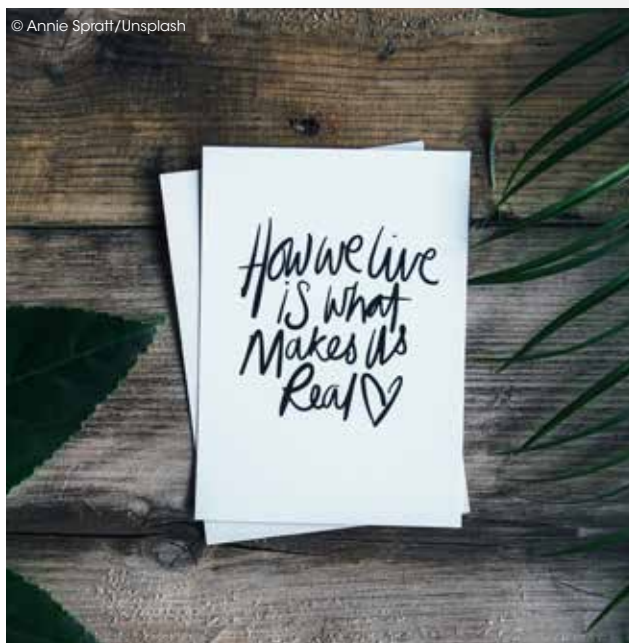 © Annie Spratt/Unsplash
How we live
is what
Makes us
Real♡